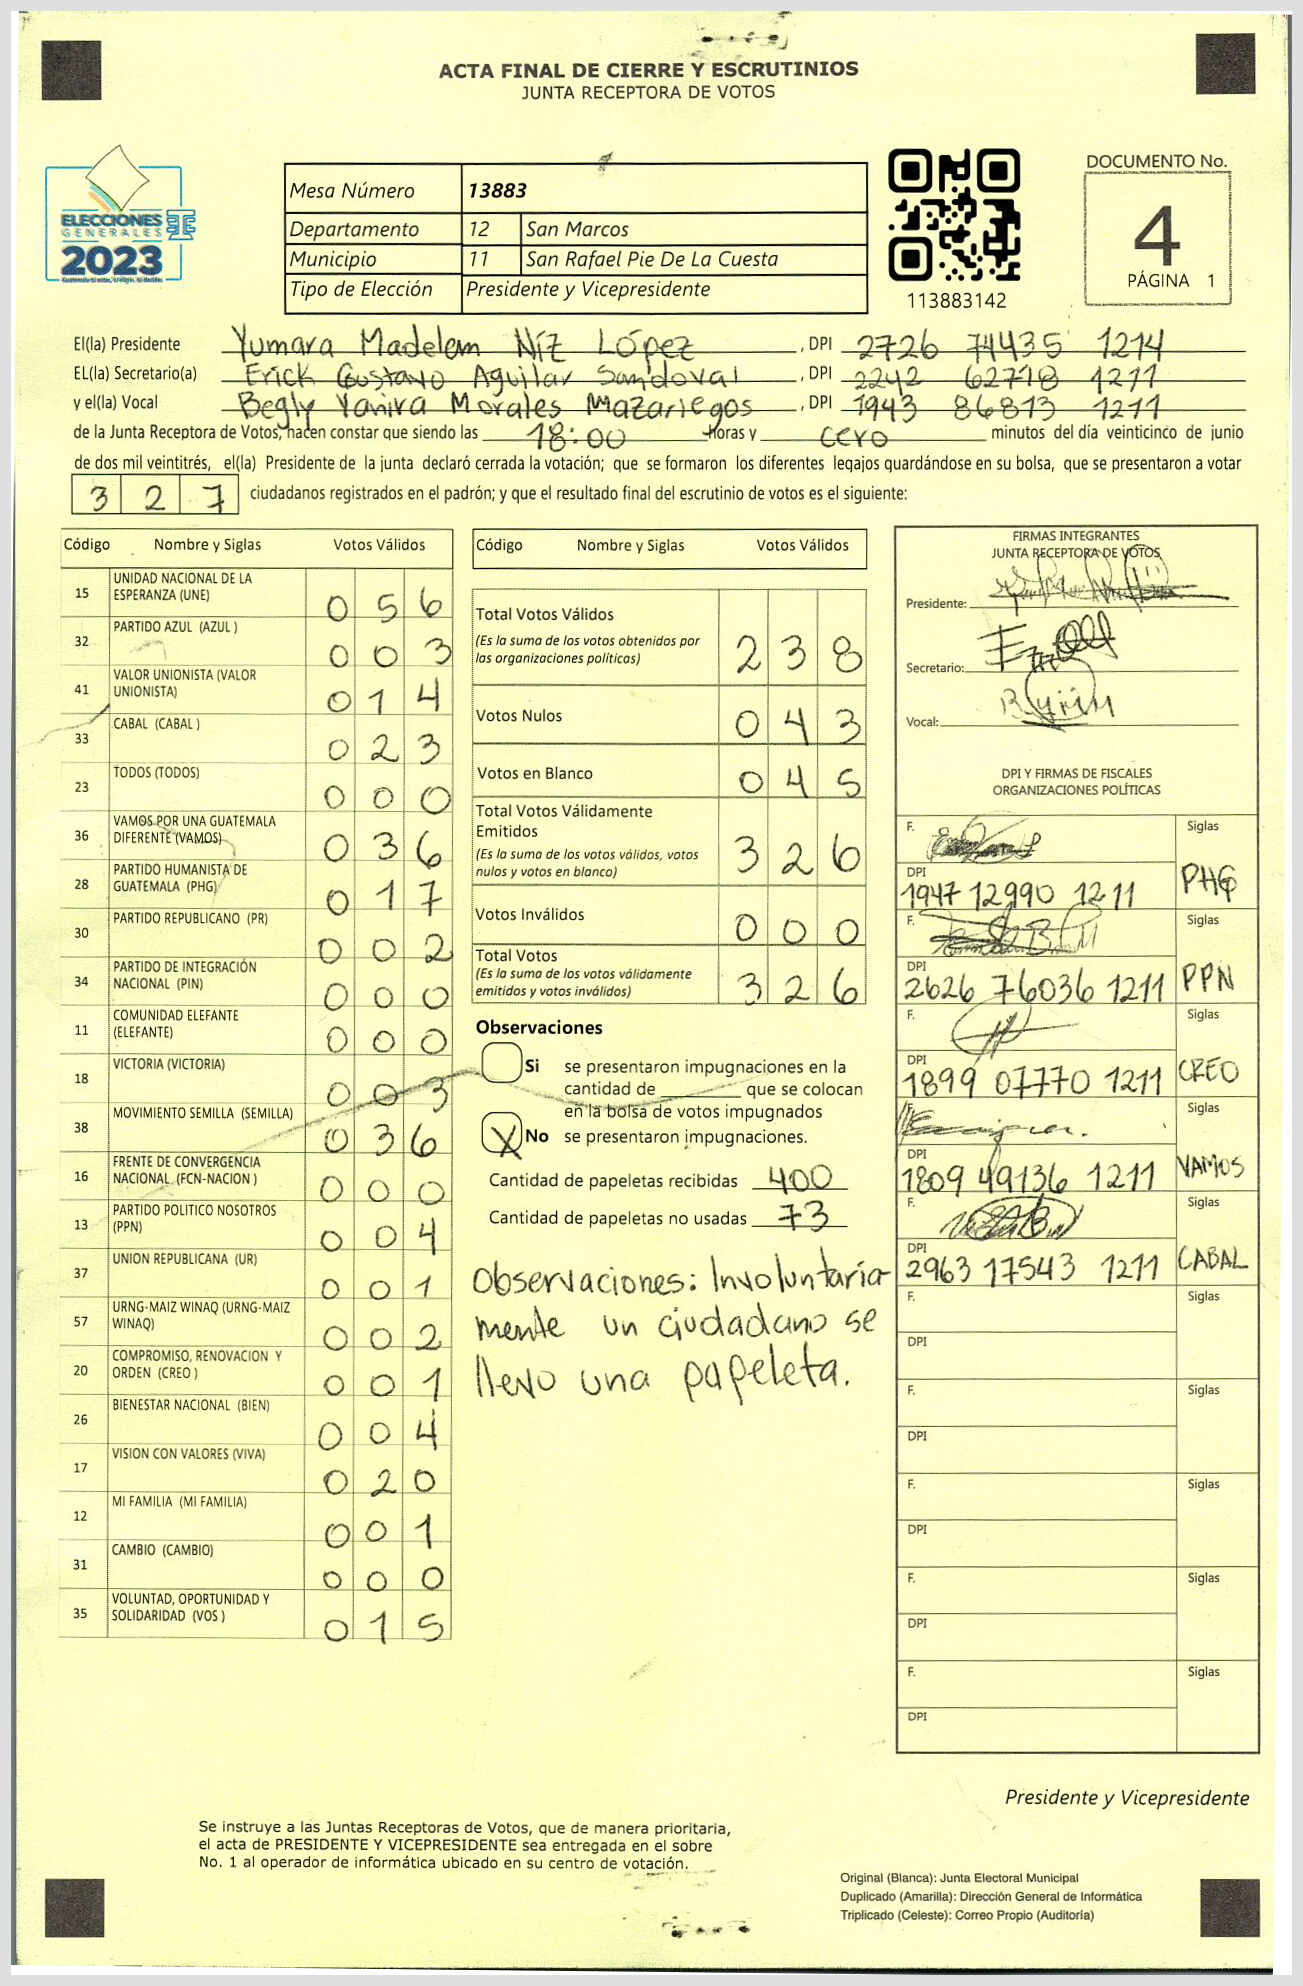 ACTA FINAL DE CIERRE Y ESCRUTINIOS
JUNTA RECEPTORA DE VOTOS
ELECCIONES
GENERALES
2023
Mesa Número 13883
Departamento 12 San Marcos
Municipio 11 San Rafael Pie De La Cuesta
Tipo de Elección Presidente y Vicepresidente
113883142
DOCUMENTO No.
4
PÁGINA 1
El(la) Presidente Yumara Madelem Níz López, DPI 2726 74435 1214
EL(la) Secretario(a) Erick Gustavo Aguilar Sandoval, DPI 2242 62718 1211
y el(la) Vocal Begly Yanira Morales Mazariegos, DPI 1943 86813 1211
de la Junta Receptora de Votos, hacen constar que siendo las 18:00 horas y cero minutos del día veinticinco de junio
de dos mil veintitrés, el(la) Presidente de la junta declaró cerrada la votación; que se formaron los diferentes legajos guardándose en su bolsa, que se presentaron a votar
327 ciudadanos registrados en el padrón; y que el resultado final del escrutinio de votos es el siguiente:
Código Nombre y Siglas Votos Válidos
15 UNIDAD NACIONAL DE LA ESPERANZA (UNE) 056
32 PARTIDO AZUL (AZUL ) 003
41 VALOR UNIONISTA (VALOR UNIONISTA) 014
33 CABAL (CABAL ) 023
23 TODOS (TODOS) 000
36 VAMOS POR UNA GUATEMALA DIFERENTE (VAMOS) 036
28 PARTIDO HUMANISTA DE GUATEMALA (PHG) 017
30 PARTIDO REPUBLICANO (PR) 002
34 PARTIDO DE INTEGRACIÓN NACIONAL (PIN) 000
11 COMUNIDAD ELEFANTE (ELEFANTE) 000
18 VICTORIA (VICTORIA) 003
38 MOVIMIENTO SEMILLA (SEMILLA) 036
16 FRENTE DE CONVERGENCIA NACIONAL (FCN-NACION ) 000
13 PARTIDO POLITICO NOSOTROS (PPN) 004
37 UNION REPUBLICANA (UR) 001
57 URNG-MAIZ WINAQ (URNG-MAIZ WINAQ) 002
20 COMPROMISO, RENOVACION Y ORDEN (CREO ) 001
26 BIENESTAR NACIONAL (BIEN) 004
17 VISION CON VALORES (VIVA) 020
12 MI FAMILIA (MI FAMILIA) 001
31 CAMBIO (CAMBIO) 000
35 VOLUNTAD, OPORTUNIDAD Y SOLIDARIDAD (VOS ) 015
Código Nombre y Siglas Votos Válidos
Total Votos Válidos 238
(Es la suma de los votos obtenidos por
las organizaciones políticas)
Votos Nulos 043
Votos en Blanco 045
Total Votos Válidamente
Emitidos 326
(Es la suma de los votos válidos, votos
nulos y votos en blanco)
Votos Inválidos 000
Total Votos 326
(Es la suma de los votos válidamente
emitidos y votos inválidos)
Observaciones
Si se presentaron impugnaciones en la
cantidad de que se colocan
en la bolsa de votos impugnados
X No se presentaron impugnaciones.
Cantidad de papeletas recibidas 400
Cantidad de papeletas no usadas 73
Observaciones: Involuntaria
mente un ciudadano se
llevo una papeleta.
FIRMAS INTEGRANTES
JUNTA RECEPTORA DE VOTOS
Presidente:
Secretario:
Vocal:
DPI Y FIRMAS DE FISCALES
ORGANIZACIONES POLÍTICAS
F. Siglas
DPI 1947 12990 1211 PHG
F. Siglas
DPI 2626 76036 1211 PPN
F. Siglas
DPI 1899 07770 1211 CREO
F. Siglas
DPI 1809 49136 1211 VAMOS
F. Siglas
DPI 2963 17543 1211 CABAL
F. Siglas
DPI
F. Siglas
DPI
F. Siglas
DPI
F. Siglas
DPI
F. Siglas
DPI
Presidente y Vicepresidente
Se instruye a las Juntas Receptoras de Votos, que de manera prioritaria,
el acta de PRESIDENTE Y VICEPRESIDENTE sea entregada en el sobre
No. 1 al operador de informática ubicado en su centro de votación.
Original (Blanca): Junta Electoral Municipal
Duplicado (Amarilla): Dirección General de Informática
Triplicado (Celeste): Correo Propio (Auditoría)